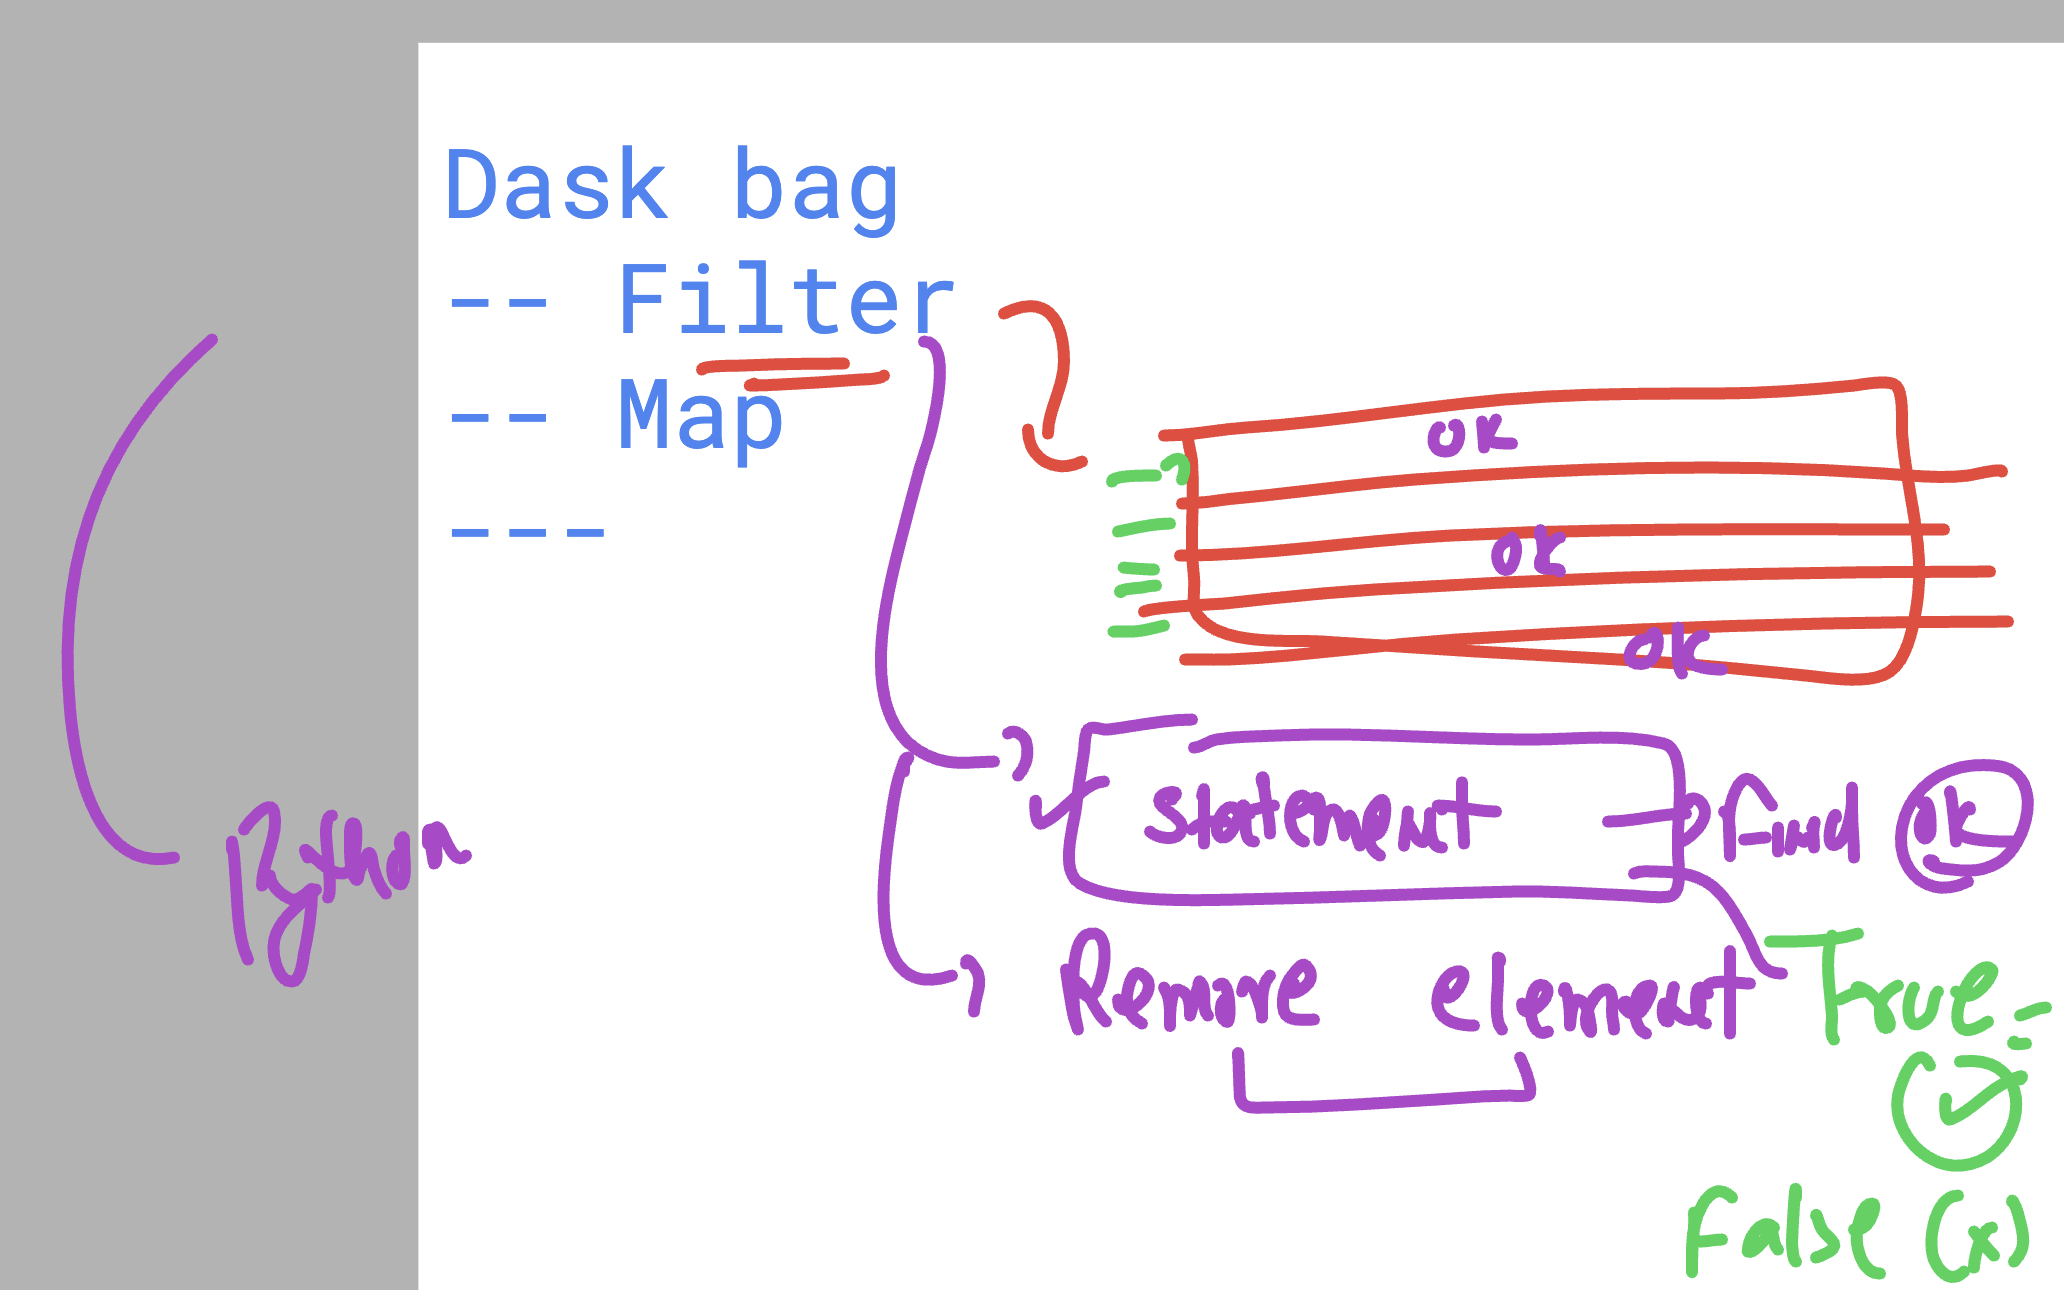 Dask bag
-- Filter
-- Map
---
ok
ok
ok
Python
Statement Find ok
Remove element True
False (x)